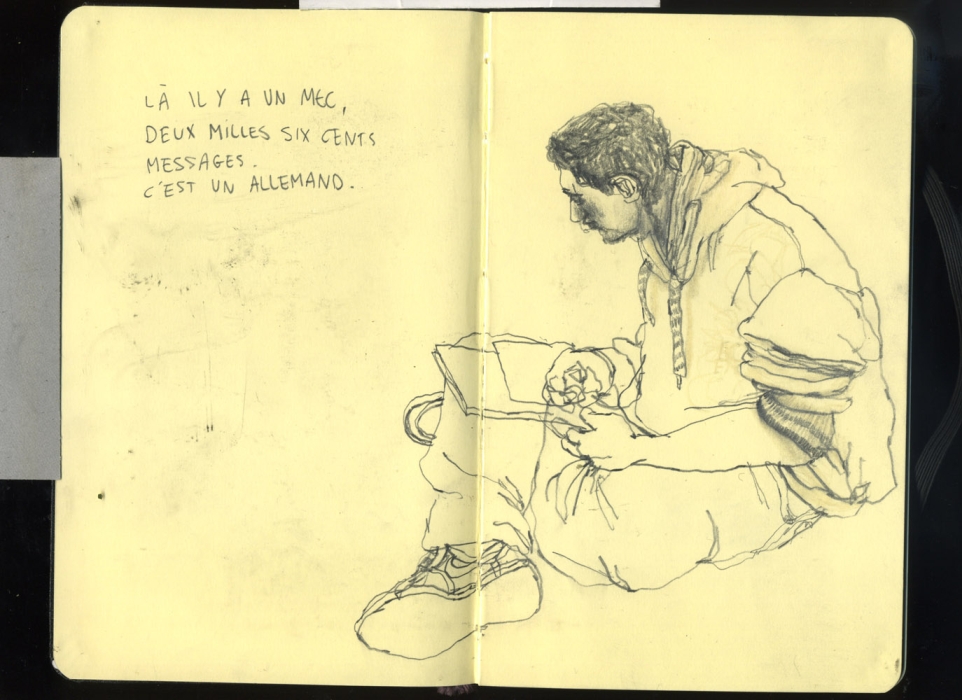 LÀ IL Y A UN MEC,
DEUX MILLES SIX CENTS
MESSAGES.
C'EST UN ALLEMAND.